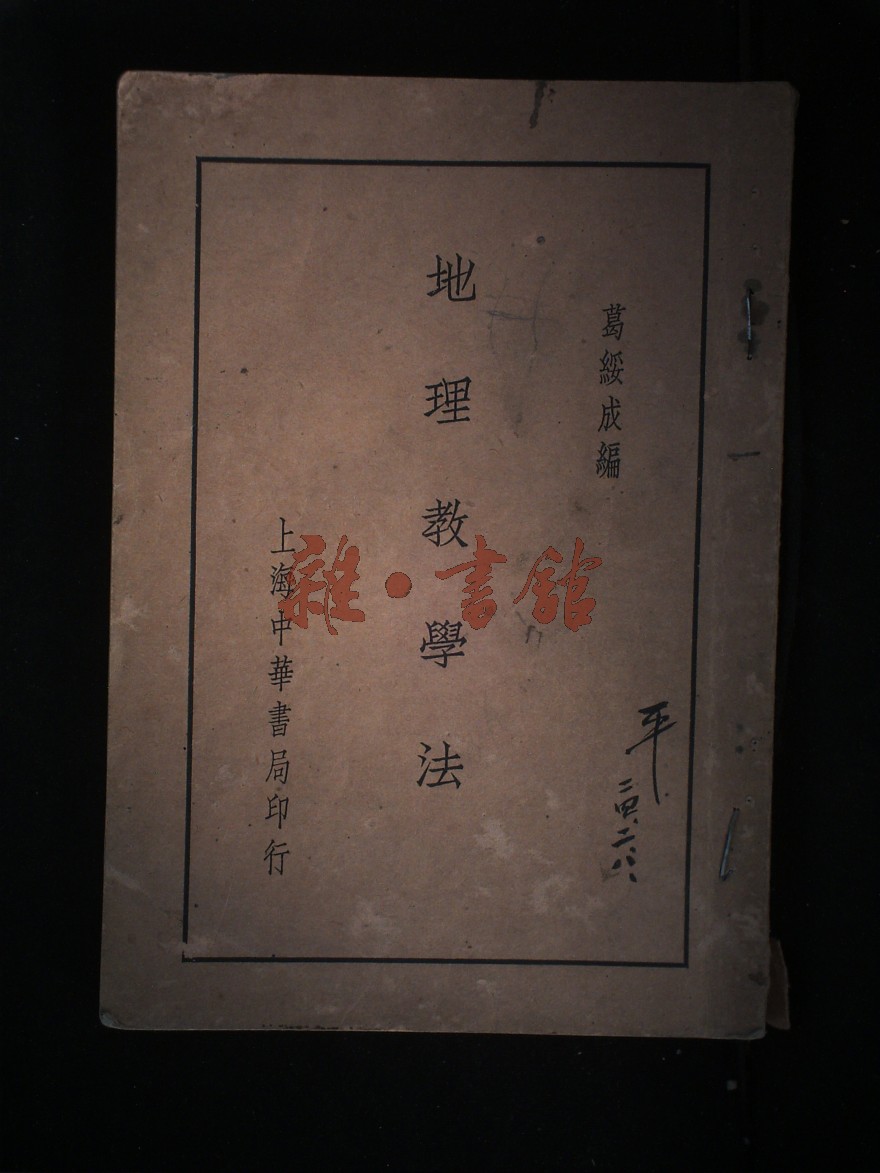 葛綏成編
地理教學法
上海中華書局印行
平
二四、二、八、
雜·書館